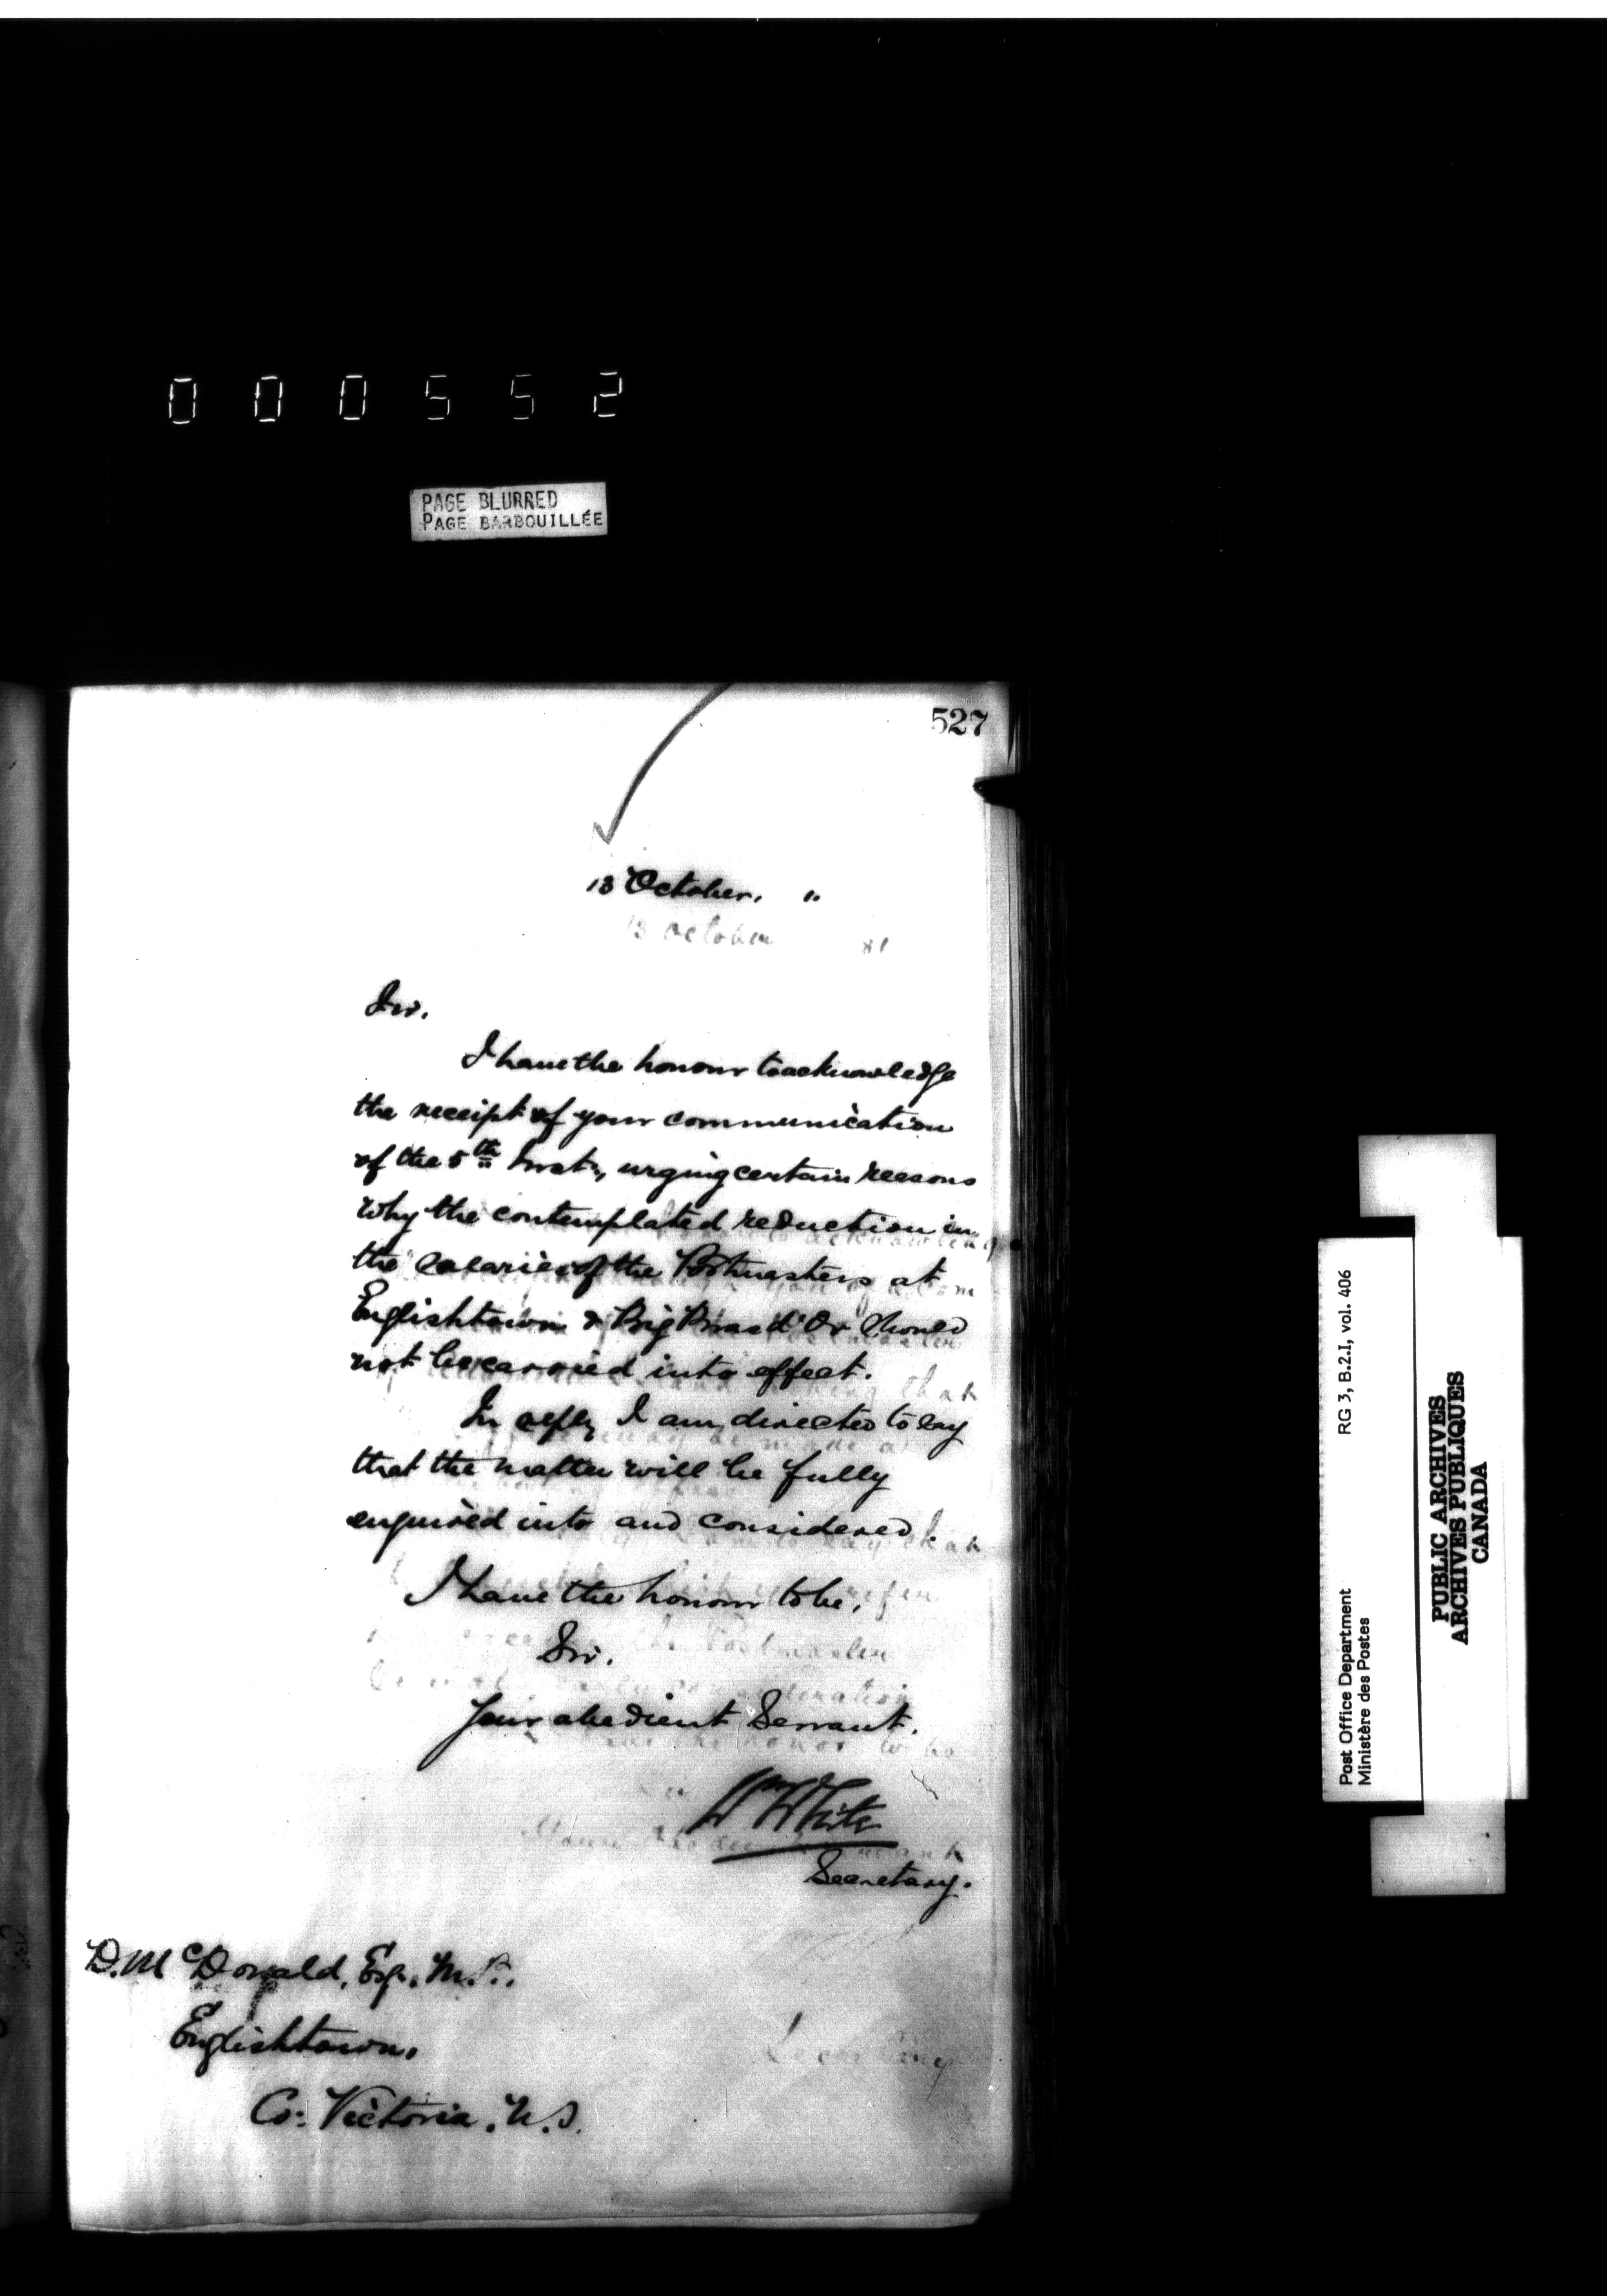 000552
PAGE BLURRED
PAGE BARBOUILLÉE
527
13 October. "
13 October 81
Sir.
I have the honour to acknowledge
the receipt of your communication
of the 5th Inst., urging certain reasons
why the contemplated reduction in
the salaries of the Postmasters at
Englishtown & Big Bras d'Or should
not be carried into effect.
In reply I am directed to say
that the matter will be fully
enquired into and considered.
I have the honour to be,
Sir.
Your obedient Servant.
Wm White
Secretary.
D. McDonald, Esq. M.P.
Englishtown.
Co: Victoria. N.S.
Secretary
Post Office Department RG 3, B.2.I, vol. 406
Ministère des Postes
PUBLIC ARCHIVES
ARCHIVES PUBLIQUES
CANADA